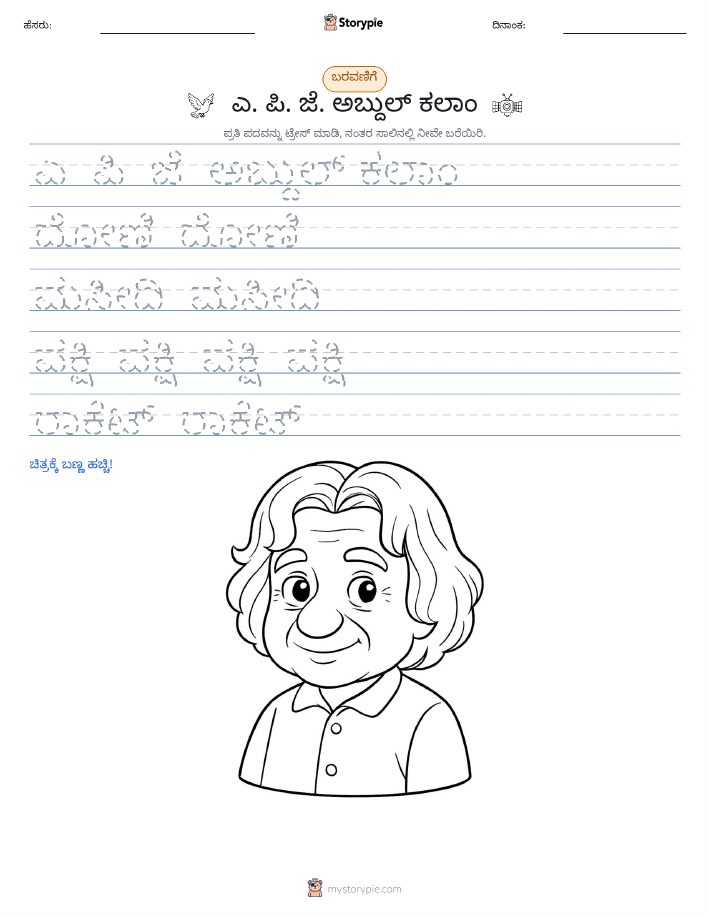 ಹೆಸರು:
Storypie
ದಿನಾಂಕ:
ಬರವಣಿಗೆ
ಎ. ಪಿ. ಜೆ. ಅಬ್ದುಲ್ ಕಲಾಂ
ಪ್ರತಿ ಪದವನ್ನು ಟ್ರೇಸ್ ಮಾಡಿ, ನಂತರ ಸಾಲಿನಲ್ಲಿ ನೀವೇ ಬರೆಯಿರಿ.
ಎ ಪಿ ಜೆ ಅಬ್ದುಲ್ ಕಲಾಂ
ದೋಣಿ ದೋಣಿ
ಮಸೀದಿ ಮಸೀದಿ
ಪತ್ರಿಕೆ
ರಾಕೆಟ್ ರಾಕೆಟ್
ಚಿತ್ರಕ್ಕೆ ಬಣ್ಣ ಹಚ್ಚಿ!
mystorypie.com